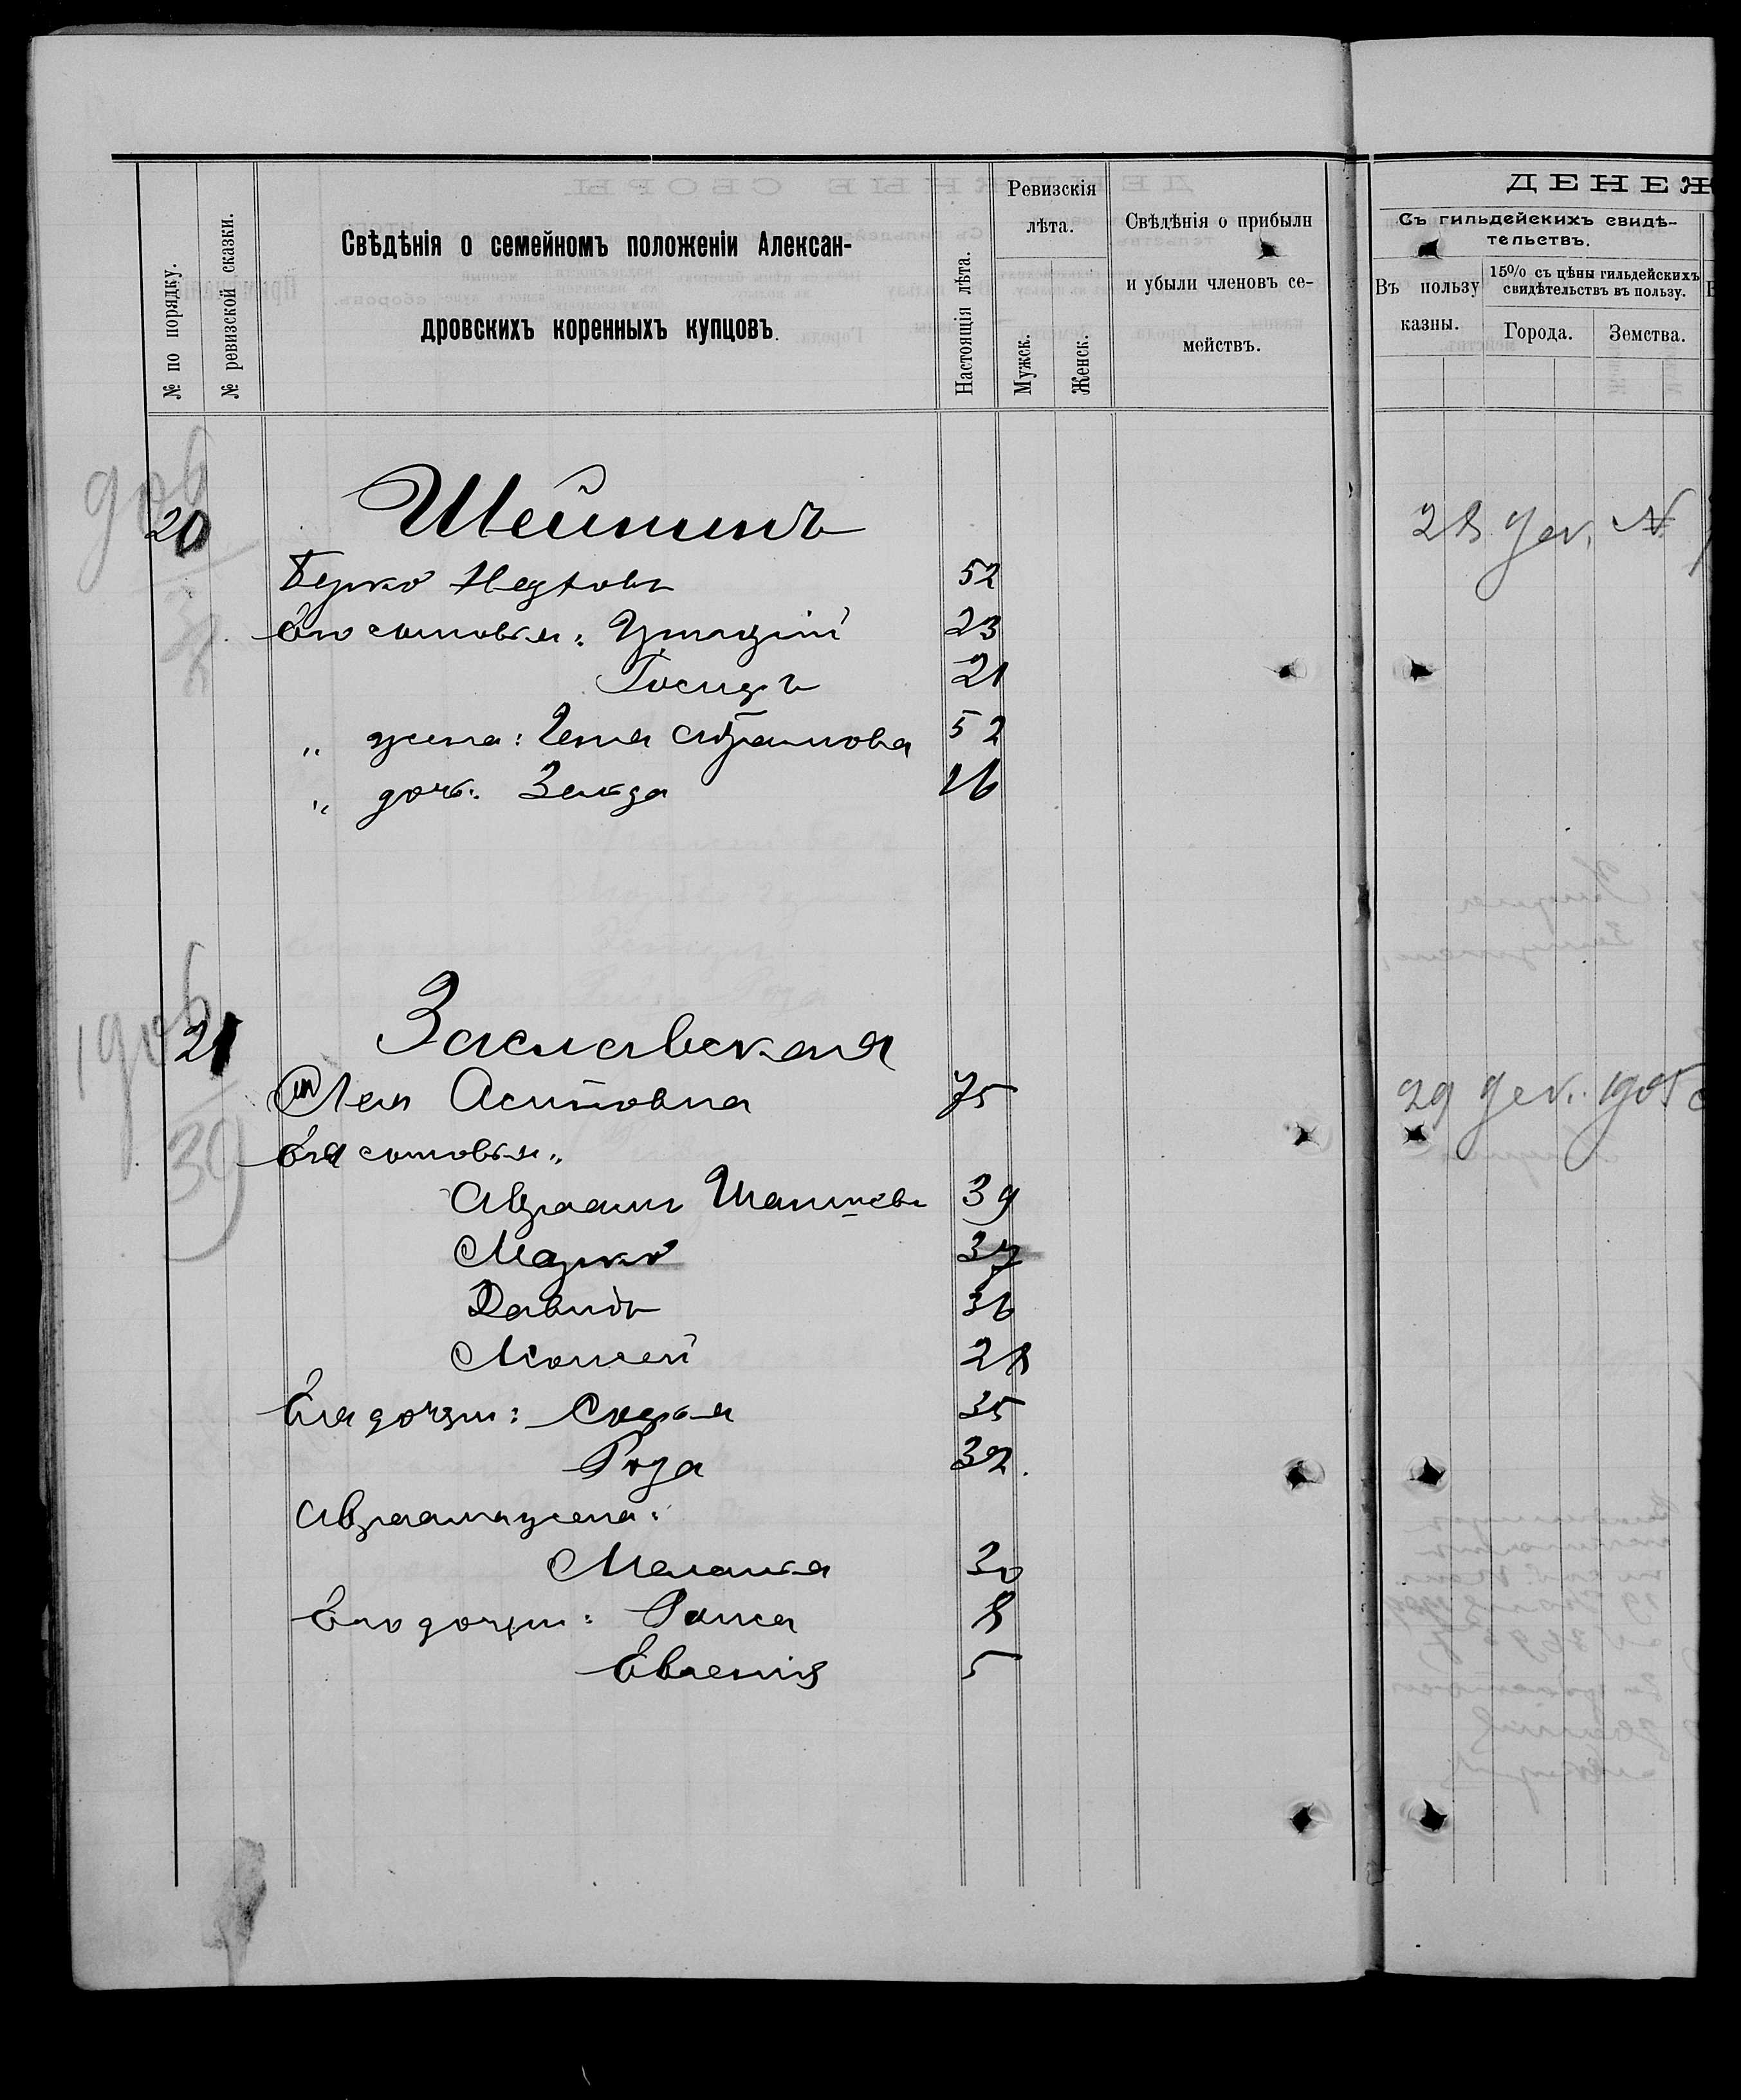 № по порядку.
№ ревизской сказки.
Свѣдѣнія о семейномъ положеніи Алексан-
дровскихъ коренныхъ купцовъ.
Настоящія лѣта.
Ревизскія
лѣта.
Мужск.
Женск.
Свѣдѣнія о прибыли
и убыли членовъ се-
мействъ.
ДЕНЕЖ
Съ гильдейскихъ свидѣ-
тельствъ.
Въ пользу
казны.
15% съ цѣны гильдейскихъ
свидѣтельствъ въ пользу.
Города.
Земства.
906
20
28 дек. №
Берко 52
Его сыновья: 23
Іосифъ 21
„ жена: Геня Абрамова 52
„ дочь: Зельда 16
1906
21
39
Заславская
29 дек. 1905
Лея Осиповна 75
Ея сыновья:
Авраамъ 39
Марко 37
Давидъ 36
Моисей 28
Ея дочери: Софья 35
Роза 32.
Авраама жена:
Меланья 30
Его дочери: Раиса 8
Евгенія 5